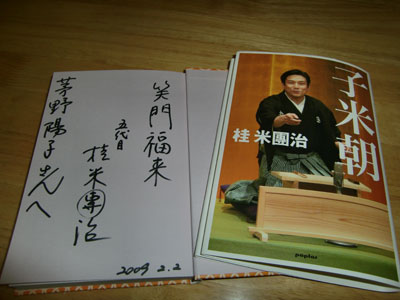 笑門福来
五代目
桂米團治
茅野陽子さんへ
2009 2.2
子米朝
桂 米團治
poplar